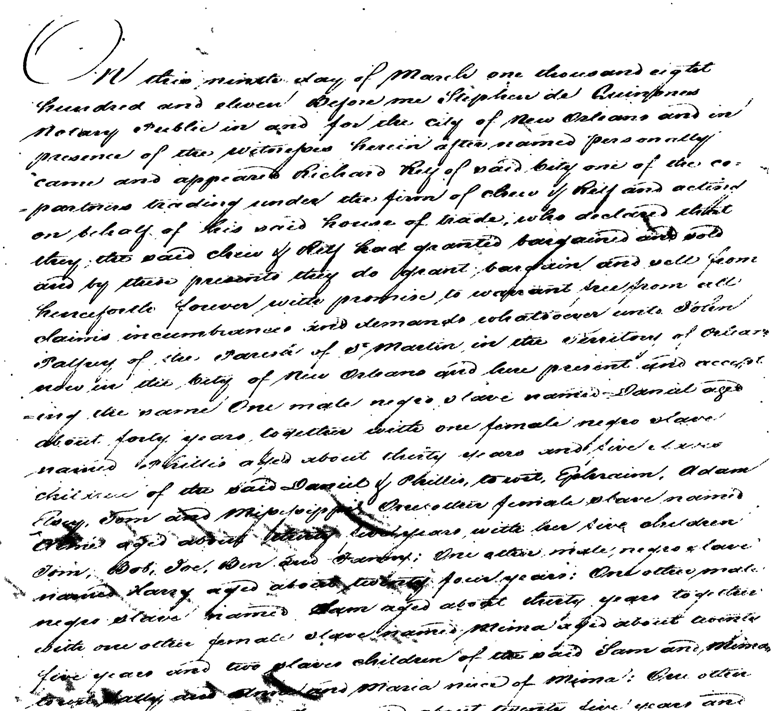 On this ninth day of March one thousand eight
hundred and eleven Before me Stephen de Quinones
Notary Public in and for the city of New Orleans and in
presence of the witnesses herein after named personally
came and appeared Richard Relf of said City one of the co-
-partners trading under the firm of Chew & Relf and acting
on behalf of his said house of trade, who declared that
they the said Chew & Relf had granted bargained and sold
and by these presents they do grant, bargain and sell from
henceforth forever with promise to warrant free from all
claims incumbrances and demands whatsoever unto John
Palfrey of the Parish of St Martin in the Territory of Orleans
now in the City of New Orleans and here present and accept-
-ing the same One male negro slave named Daniel aged
about forty years, together with one female negro slave
named Phillis aged about thirty years and five
children of the said Daniel & Phillis, to wit, Ephraim, Adam
Tom and Mississippi One other female slave named
aged about thirty five years with her five children
Tom, Bob, Joe, Ben and Fanny; One other male negro slave
named Harry aged about twenty four years; One other male
negro slave named Sam aged about thirty years together
with one other female slave named Mima aged about twenty
five years and two slaves children of the said Sam and Mima,
to wit, and and Maria niece of Mima; One other
about twenty five years and